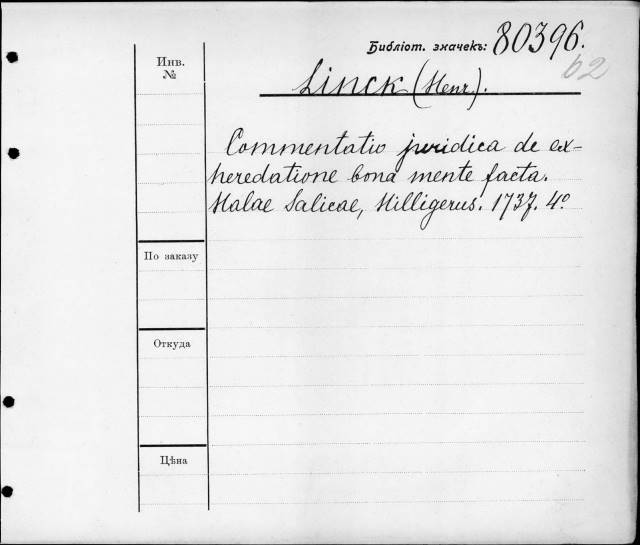 Библіот. значекъ: 80396.
62
Инв.
№
Linck (Henr.).
Commentatio juridica de ex-
heredatione bona mente facta.
Halae Salicae, Hilligerus. 1737. 4º
По заказу
Откуда
Цѣна